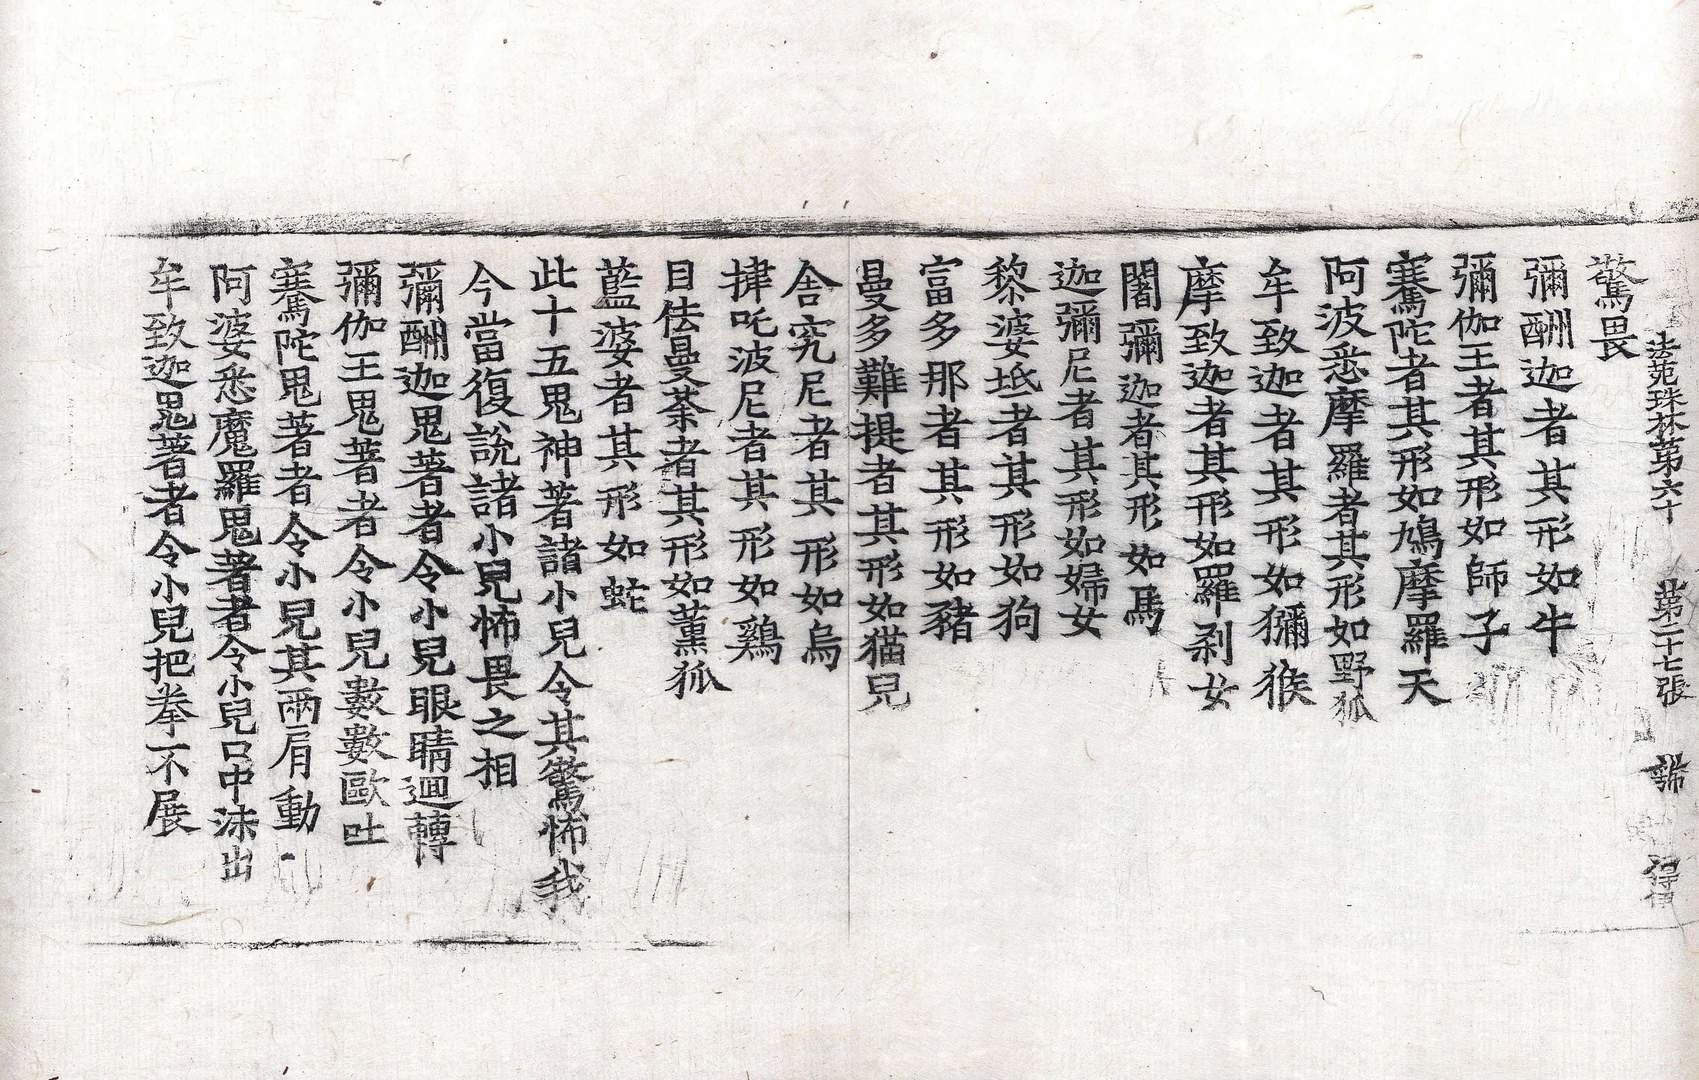 法苑珠林第六十　第二十七張　歸
驚畏
彌酬迦者其形如牛
彌伽王者其形如師子
騫陀者其形如鳩摩羅天
阿波悉摩羅者其形如野狐
牟致迦者其形如獼猴
摩致迦者其形如羅剎女
闍彌迦者其形如馬
迦彌尼者其形如婦女
黎婆坻者其形如狗
富多那者其形如豬
曼多難提者其形如猫兒
舍究尼者其形如烏
揵吒波尼者其形如鷄
目佉曼荼者其形如薰狐
藍婆者其形如蛇
此十五鬼神著諸小兒令其驚怖我
今當復說諸小兒怖畏之相
彌酬迦鬼著者令小兒眼睛迴轉
彌伽王鬼著者令小兒數數歐吐
騫陀鬼著者令小兒其兩肩動
阿婆悉魔羅鬼著者令小兒口中沫出
牟致迦鬼著者令小兒把拳不展